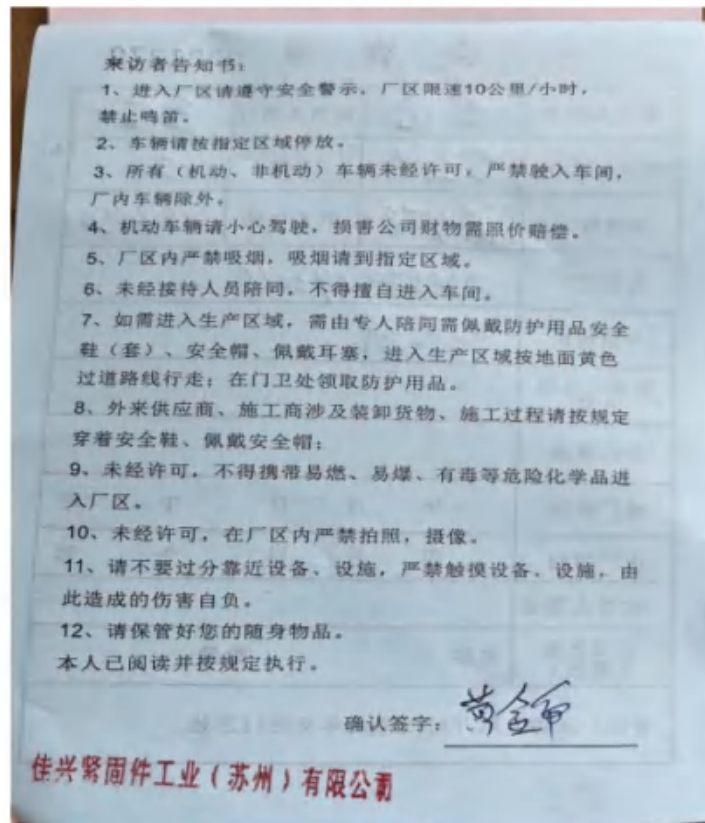 来访者告知书：
1、进入厂区请遵守安全警示，厂区限速10公里/小时，
禁止鸣笛。
2、车辆请按指定区域停放。
3、所有（机动、非机动）车辆未经许可，严禁驶入车间，
厂内车辆除外。
4、机动车辆请小心驾驶，损害公司财物需照价赔偿。
5、厂区内严禁吸烟，吸烟请到指定区域。
6、未经接待人员陪同，不得擅自进入车间。
7、如需进入生产区域，需由专人陪同需佩戴防护用品安全
鞋（套）、安全帽、佩戴耳塞，进入生产区域按地面黄色
过道路线行走；在门卫处领取防护用品。
8、外来供应商、施工商涉及装卸货物、施工过程请按规定
穿着安全鞋、佩戴安全帽；
9、未经许可，不得携带易燃、易爆、有毒等危险化学品进
入厂区。
10、未经许可，在厂区内严禁拍照，摄像。
11、请不要过分靠近设备、设施，严禁触摸设备、设施，由
此造成的伤害自负。
12、请保管好您的随身物品。
本人已阅读并按规定执行。
确认签字：黄金
佳兴紧固件工业（苏州）有限公司